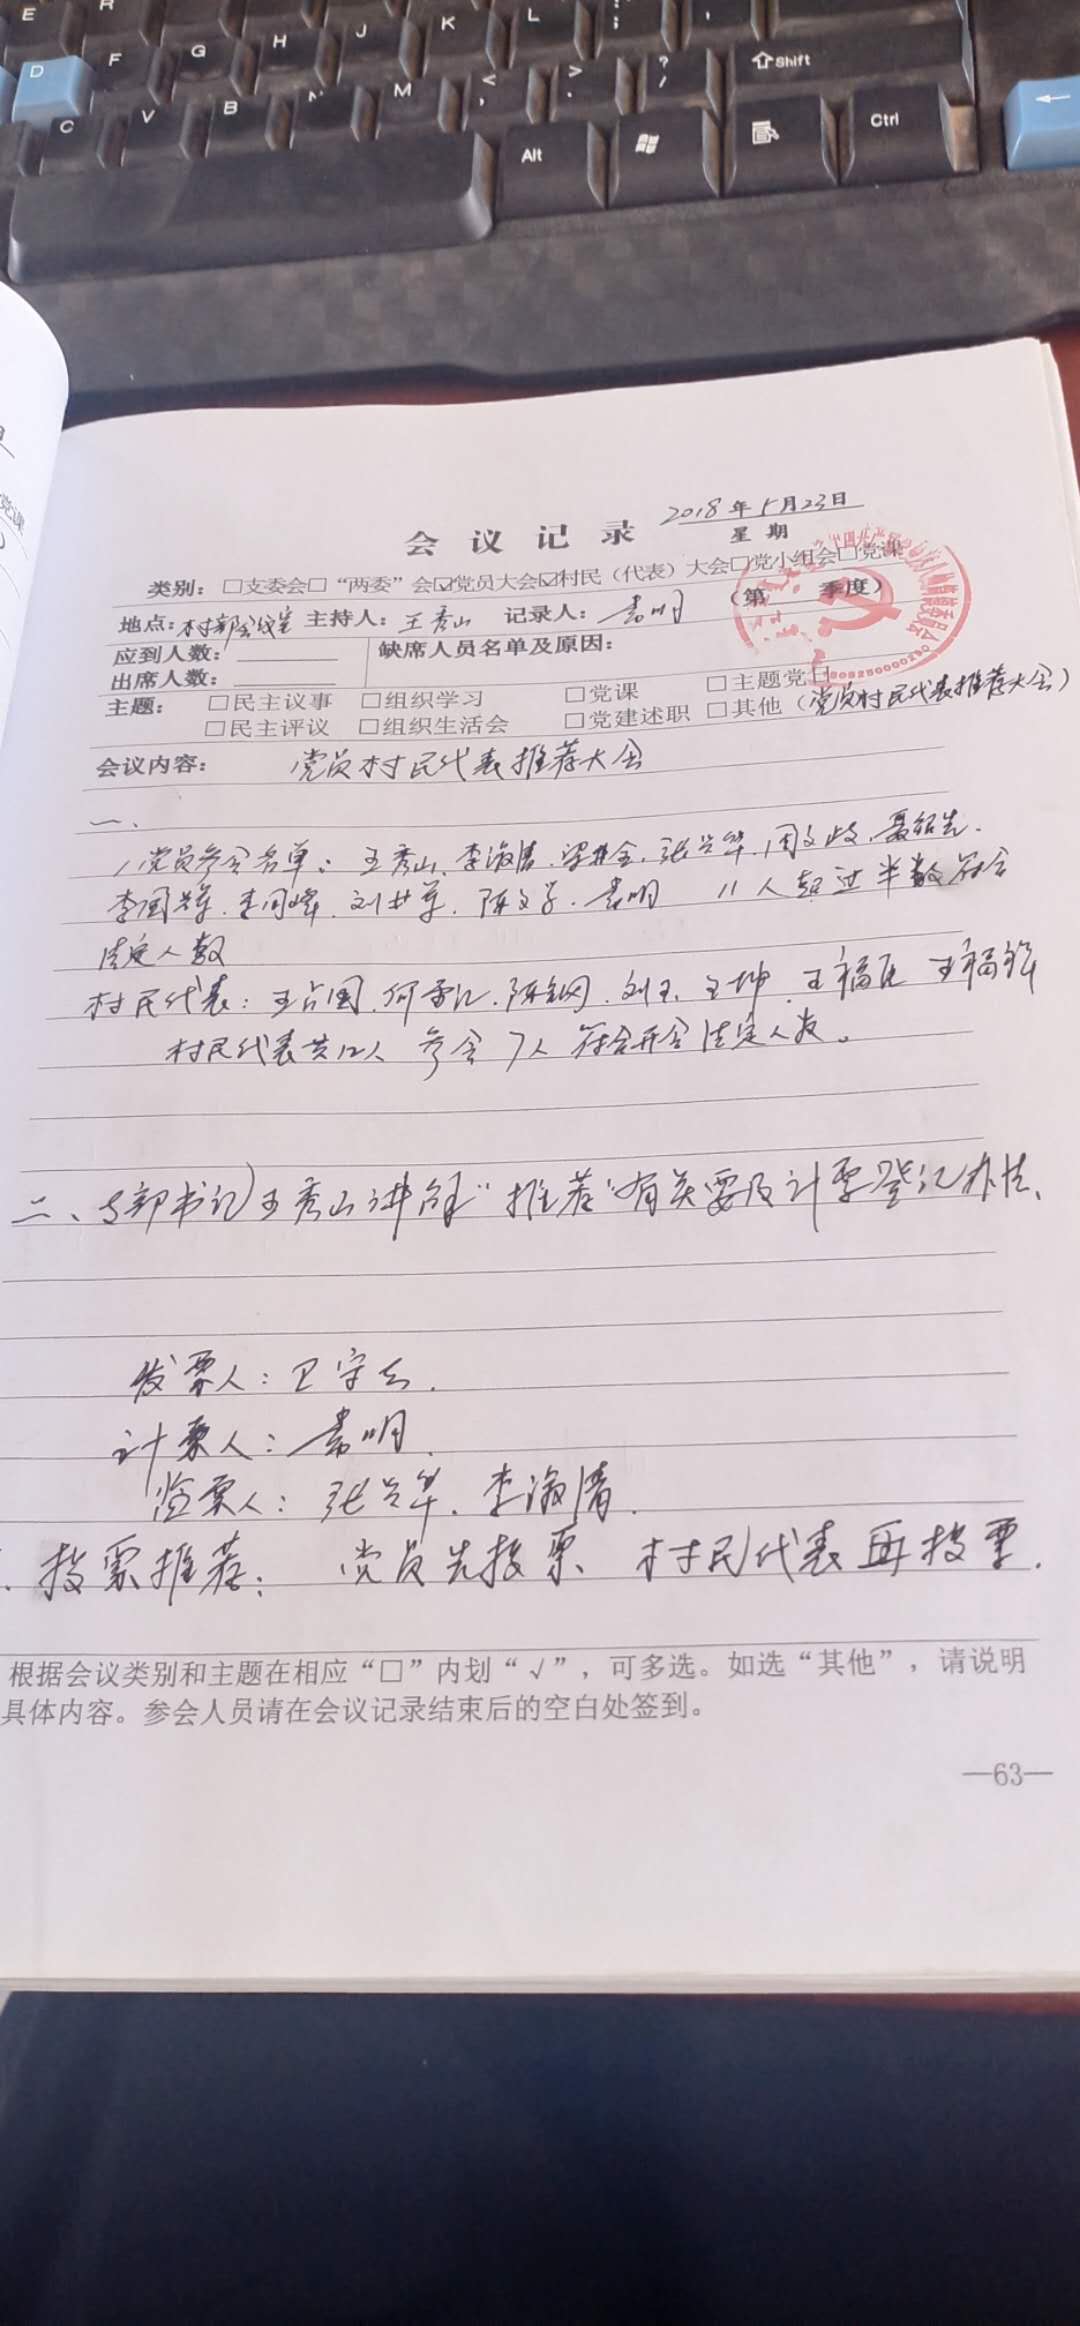 E R J K L ; :
D F G H ⇧Shift
C V B N M < , > . ? /
Alt Ctrl
党课
2018年5月23日
会 议 记 录
星 期
类别：□支委会□“两委”会☑党员大会☑村民（代表）大会□党小组会□党课
（第 季度）
地点：村部会议室 主持人：王秀山 记录人：
应到人数： 缺席人员名单及原因：
出席人数：
主题： □民主议事 □组织学习 □党课 □主题党日
□民主评议 □组织生活会 □党建述职 □其他（党员村民代表推荐大会）
会议内容： 党员村民代表推荐大会
一、
1党员参会名单：王秀山、李淑清、梁井全、张兴华、周文岐、聂绍先、
李国军、李同峰、刘井军、陈文学、 11人超过半数符合
法定人数
村民代表：王占国、何 、陈 、刘玉、王坤、王福臣 王福
村民代表共12人 参会7人 符合开会法定人数。
二、支部书记王秀山讲解“推荐”有关要及计票登记办法、
发票人：卫守
计票人： 明
监票人：张兴华、李淑清
投票推荐： 党员先投票 村民代表再投票.
根据会议类别和主题在相应“□”内划“√”，可多选。如选“其他”，请说明
具体内容。参会人员请在会议记录结束后的空白处签到。
—63—